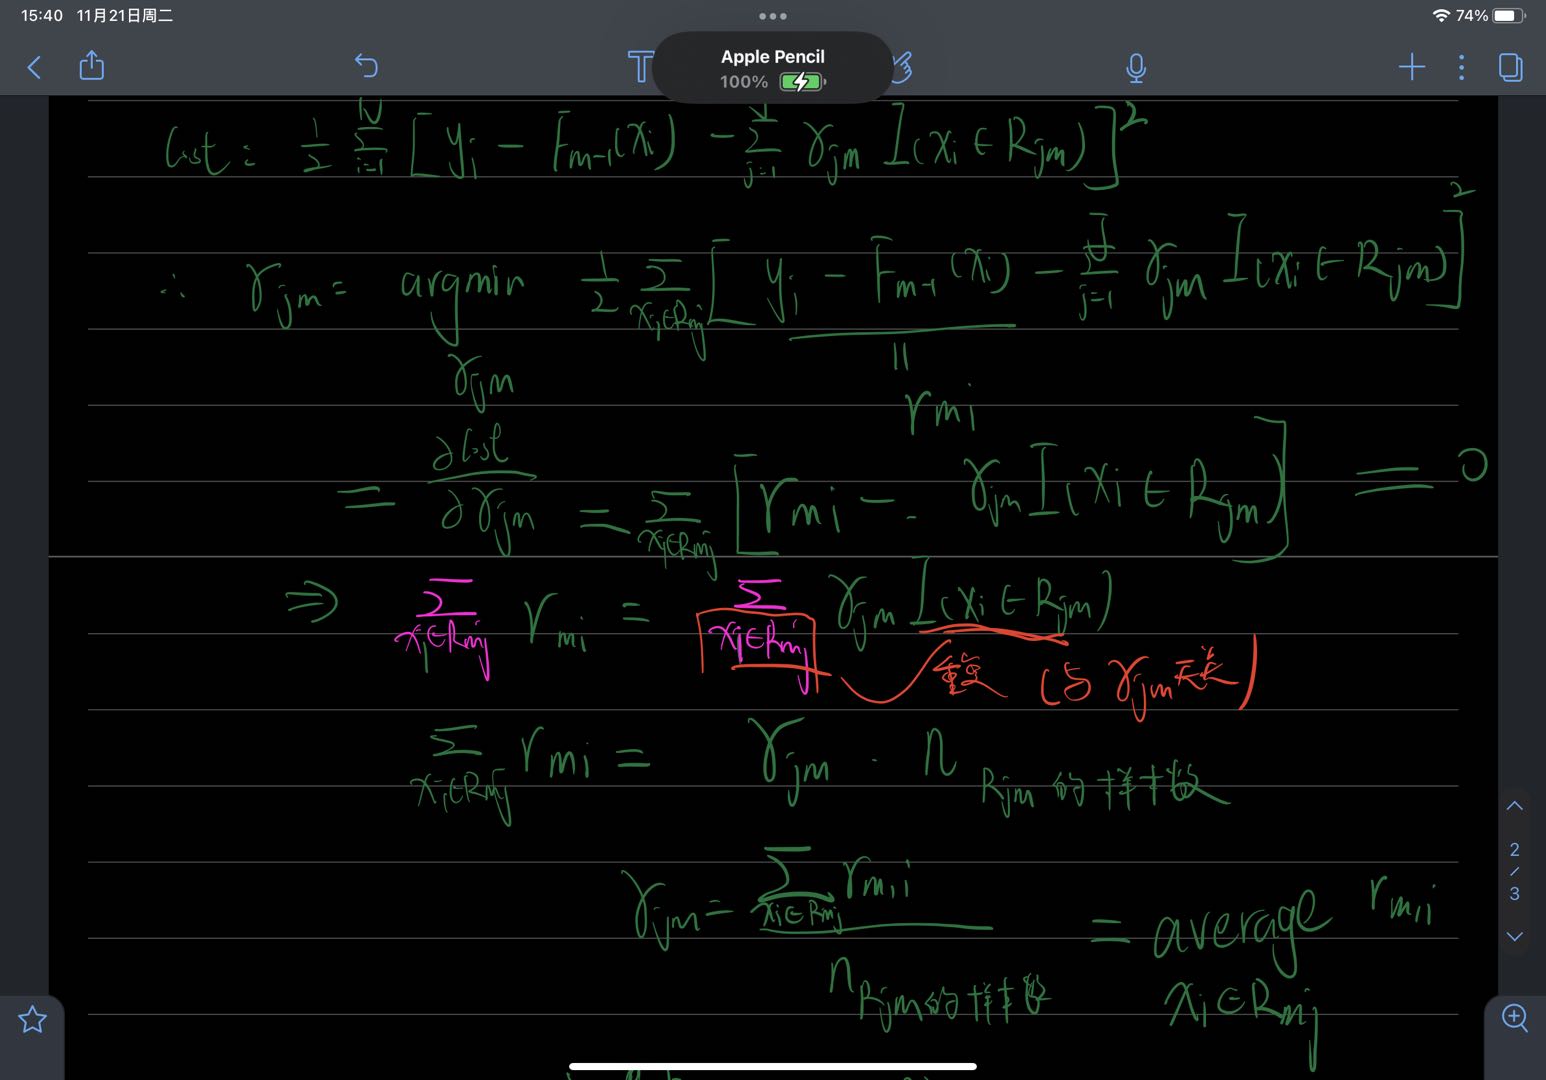 15:40 11月21日周二
74%
Apple Pencil
100%
Cost: 1/2 Σ_{i=1}^{N} [y_i − F_{m-1}(x_i) − Σ_{j=1}^{J} γ_{jm} I(x_i ∈ R_{jm})]^2
∴ γ_{jm} = argmin_{γ_{jm}} 1/2 Σ_{x_i∈R_{mj}} [y_i − F_{m-1}(x_i) − Σ_{j=1}^{J} γ_{jm} I(x_i ∈ R_{jm})]^2
||
r_{mi}
= ∂Cost/∂γ_{jm} = Σ_{x_i∈R_{mj}} [r_{mi} − γ_{jm} I(x_i ∈ R_{jm})] = 0
⇒ Σ_{x_i∈R_{mj}} r_{mi} = Σ_{x_i∈R_{mj}} γ_{jm} I(x_i ∈ R_{jm})
重复 (与 γ_{jm} 无关)
Σ_{x_i∈R_{mj}} r_{mi} = γ_{jm} · n_{R_{jm}的样本数}
γ_{jm} = Σ_{x_i∈R_{mj}} r_{m,i} / n_{R_{jm}的样本数} = average_{x_i∈R_{mj}} r_{m,i}
2
/
3